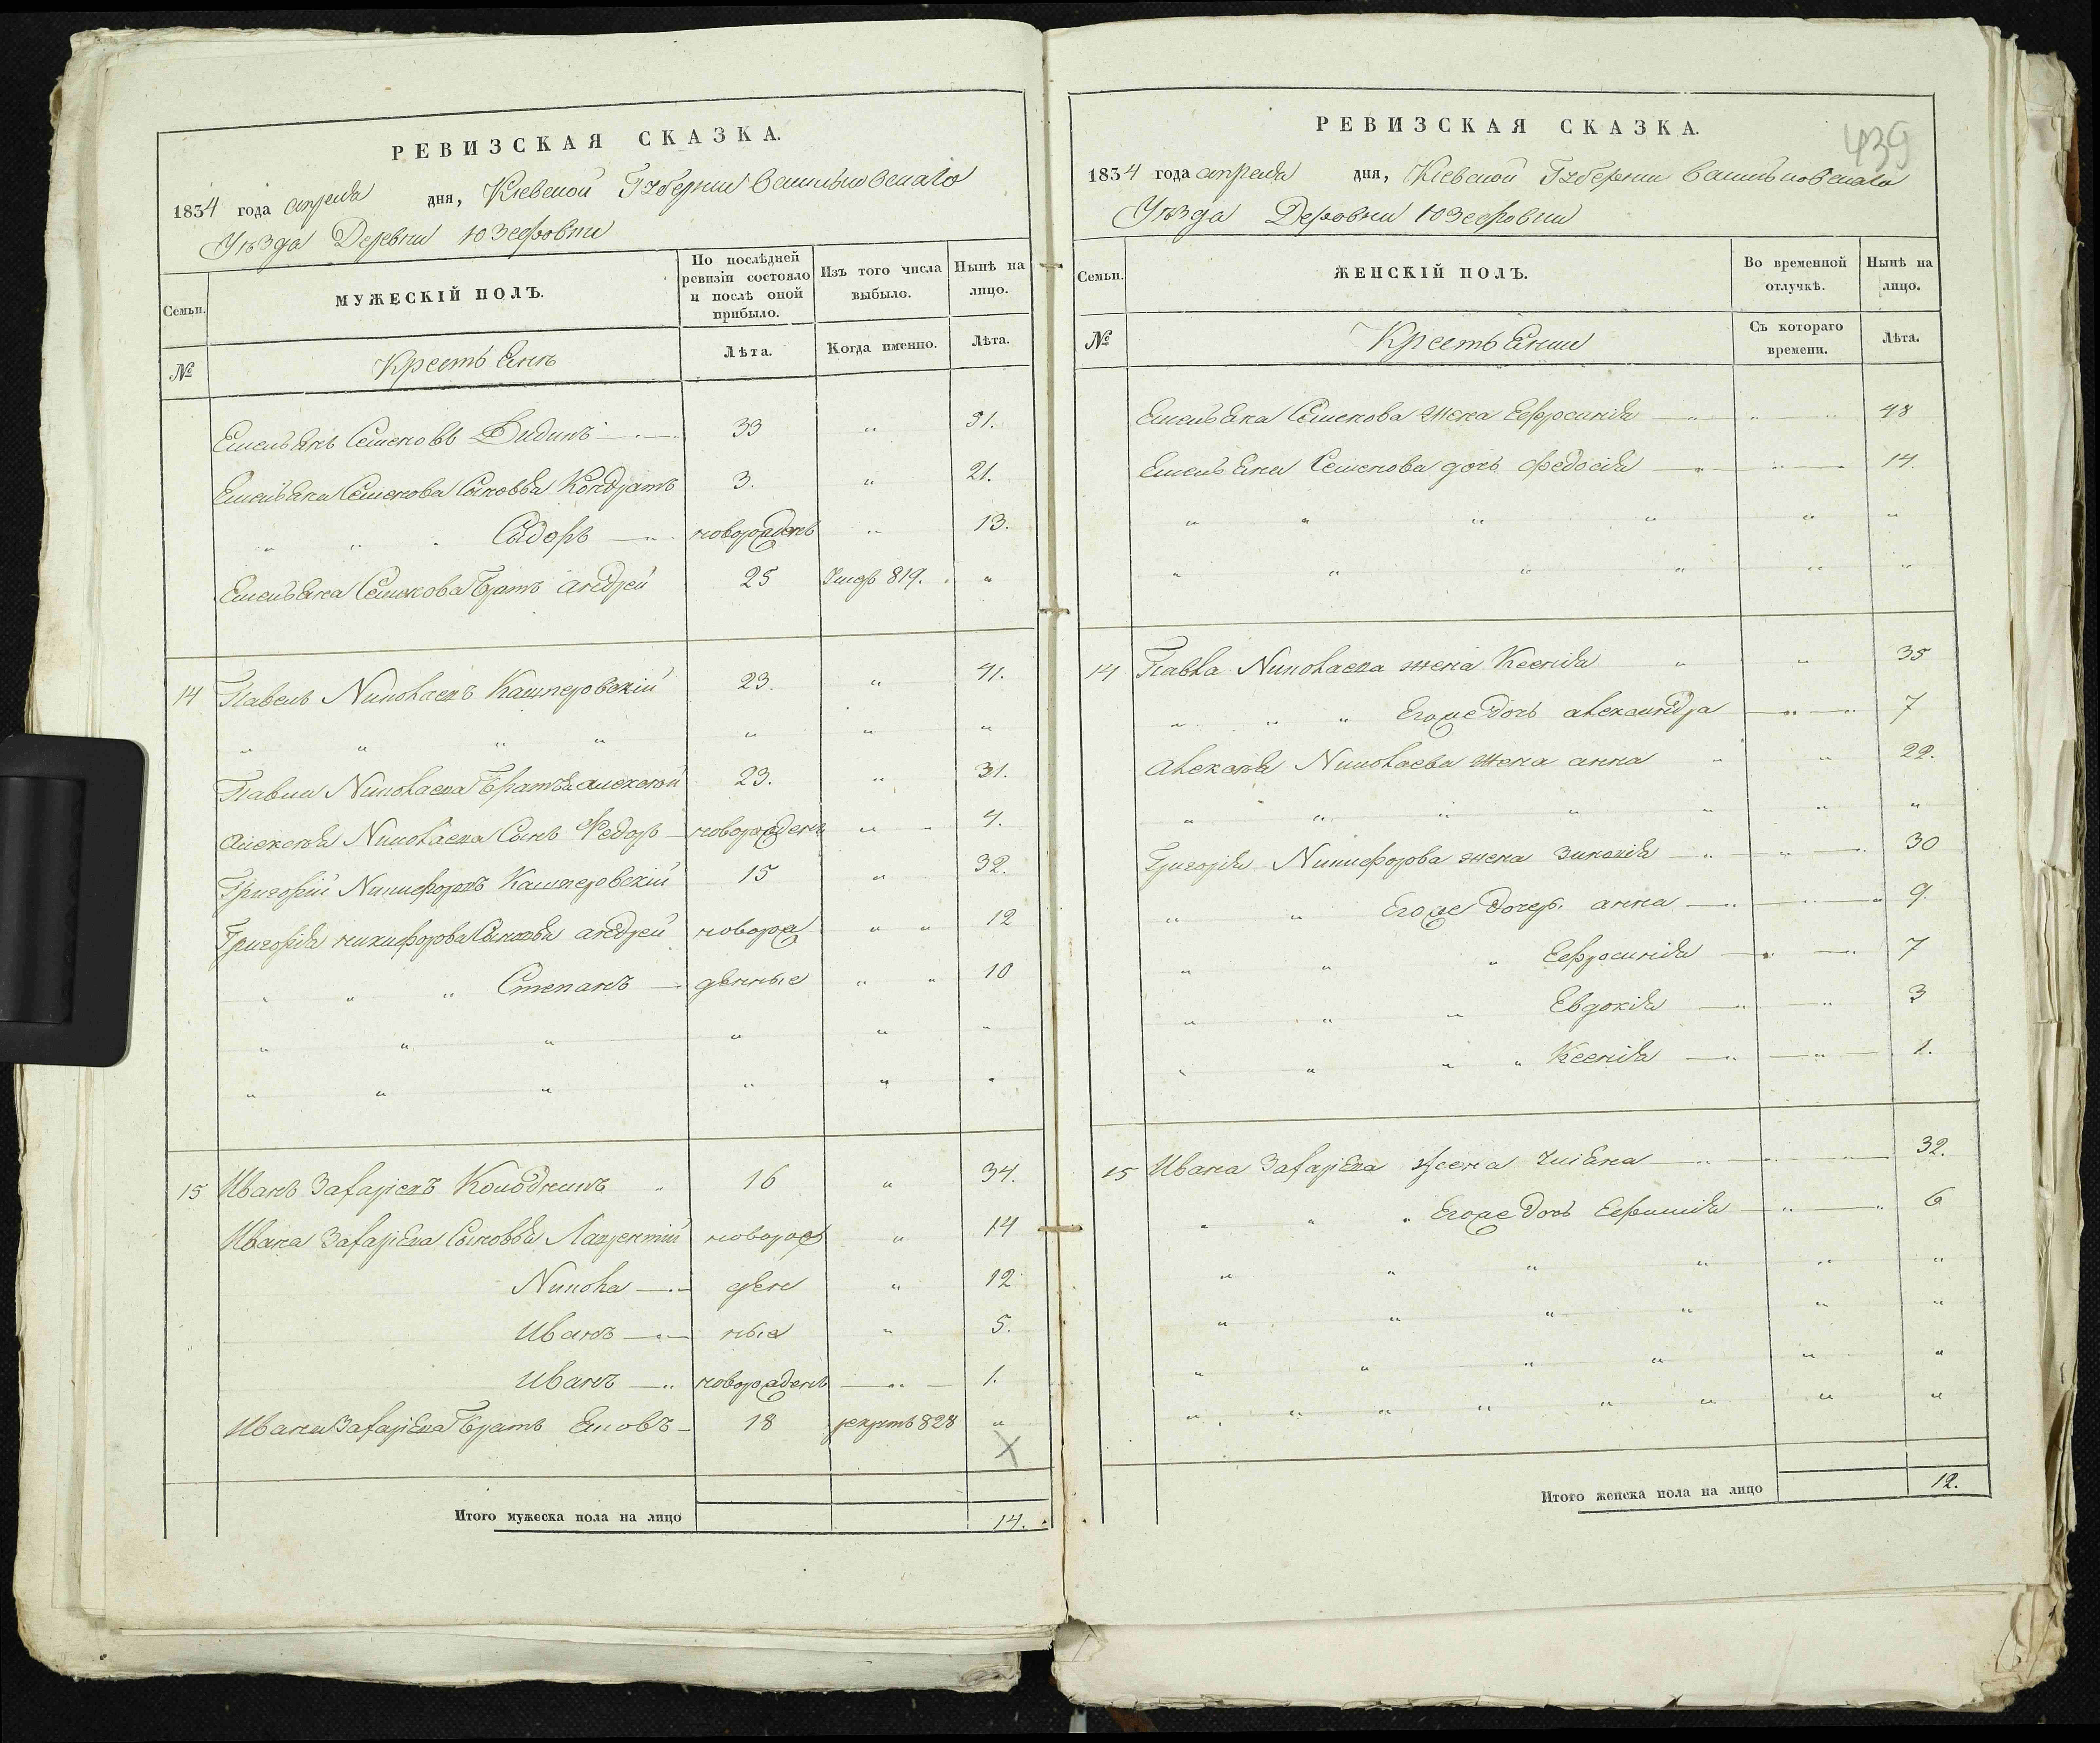 РЕВИЗСКАЯ СКАЗКА.
1834 года апреля дня, Кіевской Губерніи Васильковскаго
Уѣзда Деревни Юзефовки
Семьи. МУЖЕСКІЙ ПОЛЪ. По послѣдней ревизіи состояло и послѣ оной прибыло. Изъ того числа выбыло. Нынѣ на лицо.
№ Крестьянъ Лѣта. Когда именно. Лѣта.
Емельянъ Семеновъ 33 " 51.
Емельяна Семенова Сыновья Кондратъ 3. " 21.
" " " Сидоръ новорожденъ " 13.
Емельяна Семенова Братъ андрей 25 Умеръ 819. "
14 Павелъ Николаевъ Кашперовскій 23. " 41.
" " " " " " "
Павла Николаева Братъ алексѣй 23. " 31.
алексѣя Николаева Сынъ Федоръ новорожденъ " 4.
Григорій Никифоровъ Кашперовскій 15 " 32.
Григорія никифорова Сыновья андрей новорож " " 12
" " " Степанъ денные " " 10
" " " " " "
" " " " " "
15 Иванъ Захаріевъ Колодкинъ " 16 " 34.
Ивана Захаріева Сыновья Лаврентій новорож " 14
Никола ден " 12
Иванъ ные " 5.
Иванъ новорожденъ " 1.
Ивана Захаріева Братъ Яковъ 18 рекрутъ 828 "
X
Итого мужеска пола на лицо 14.
439
РЕВИЗСКАЯ СКАЗКА.
1834 года апреля дня, Кіевской Губерніи Васильковскаго
Уѣзда Деревни Юзефовки
Семьи. ЖЕНСКІЙ ПОЛЪ. Во временной отлучкѣ. Нынѣ на лицо.
№ Крестьянки Съ котораго времени. Лѣта.
Емельяна Семенова жена Ефросинія " " 48
Емельяна Семенова дочь Федосія " " 14.
" " " " " "
" " " " " "
14 Павла Николаева жена Ксенія " " 35
" " " Егоже дочь александра " " 7
алексѣя Николаева жена анна " " 22.
" " " " " " "
Григорія Никифорова жена Зиновія " " 30
" " Егоже дочер. анна " " 9.
" " " Ефросинія " " 7
" " " Евдокія " " 3
" " " " Ксенія " " 1.
15 Ивана Захаріева жена Уліяна " " 32.
" " " Егоже дочь Ефимія " " 6
" " " " " "
" " " " " "
" " " " " "
" " " " " " " "
Итого женска пола на лицо 12.